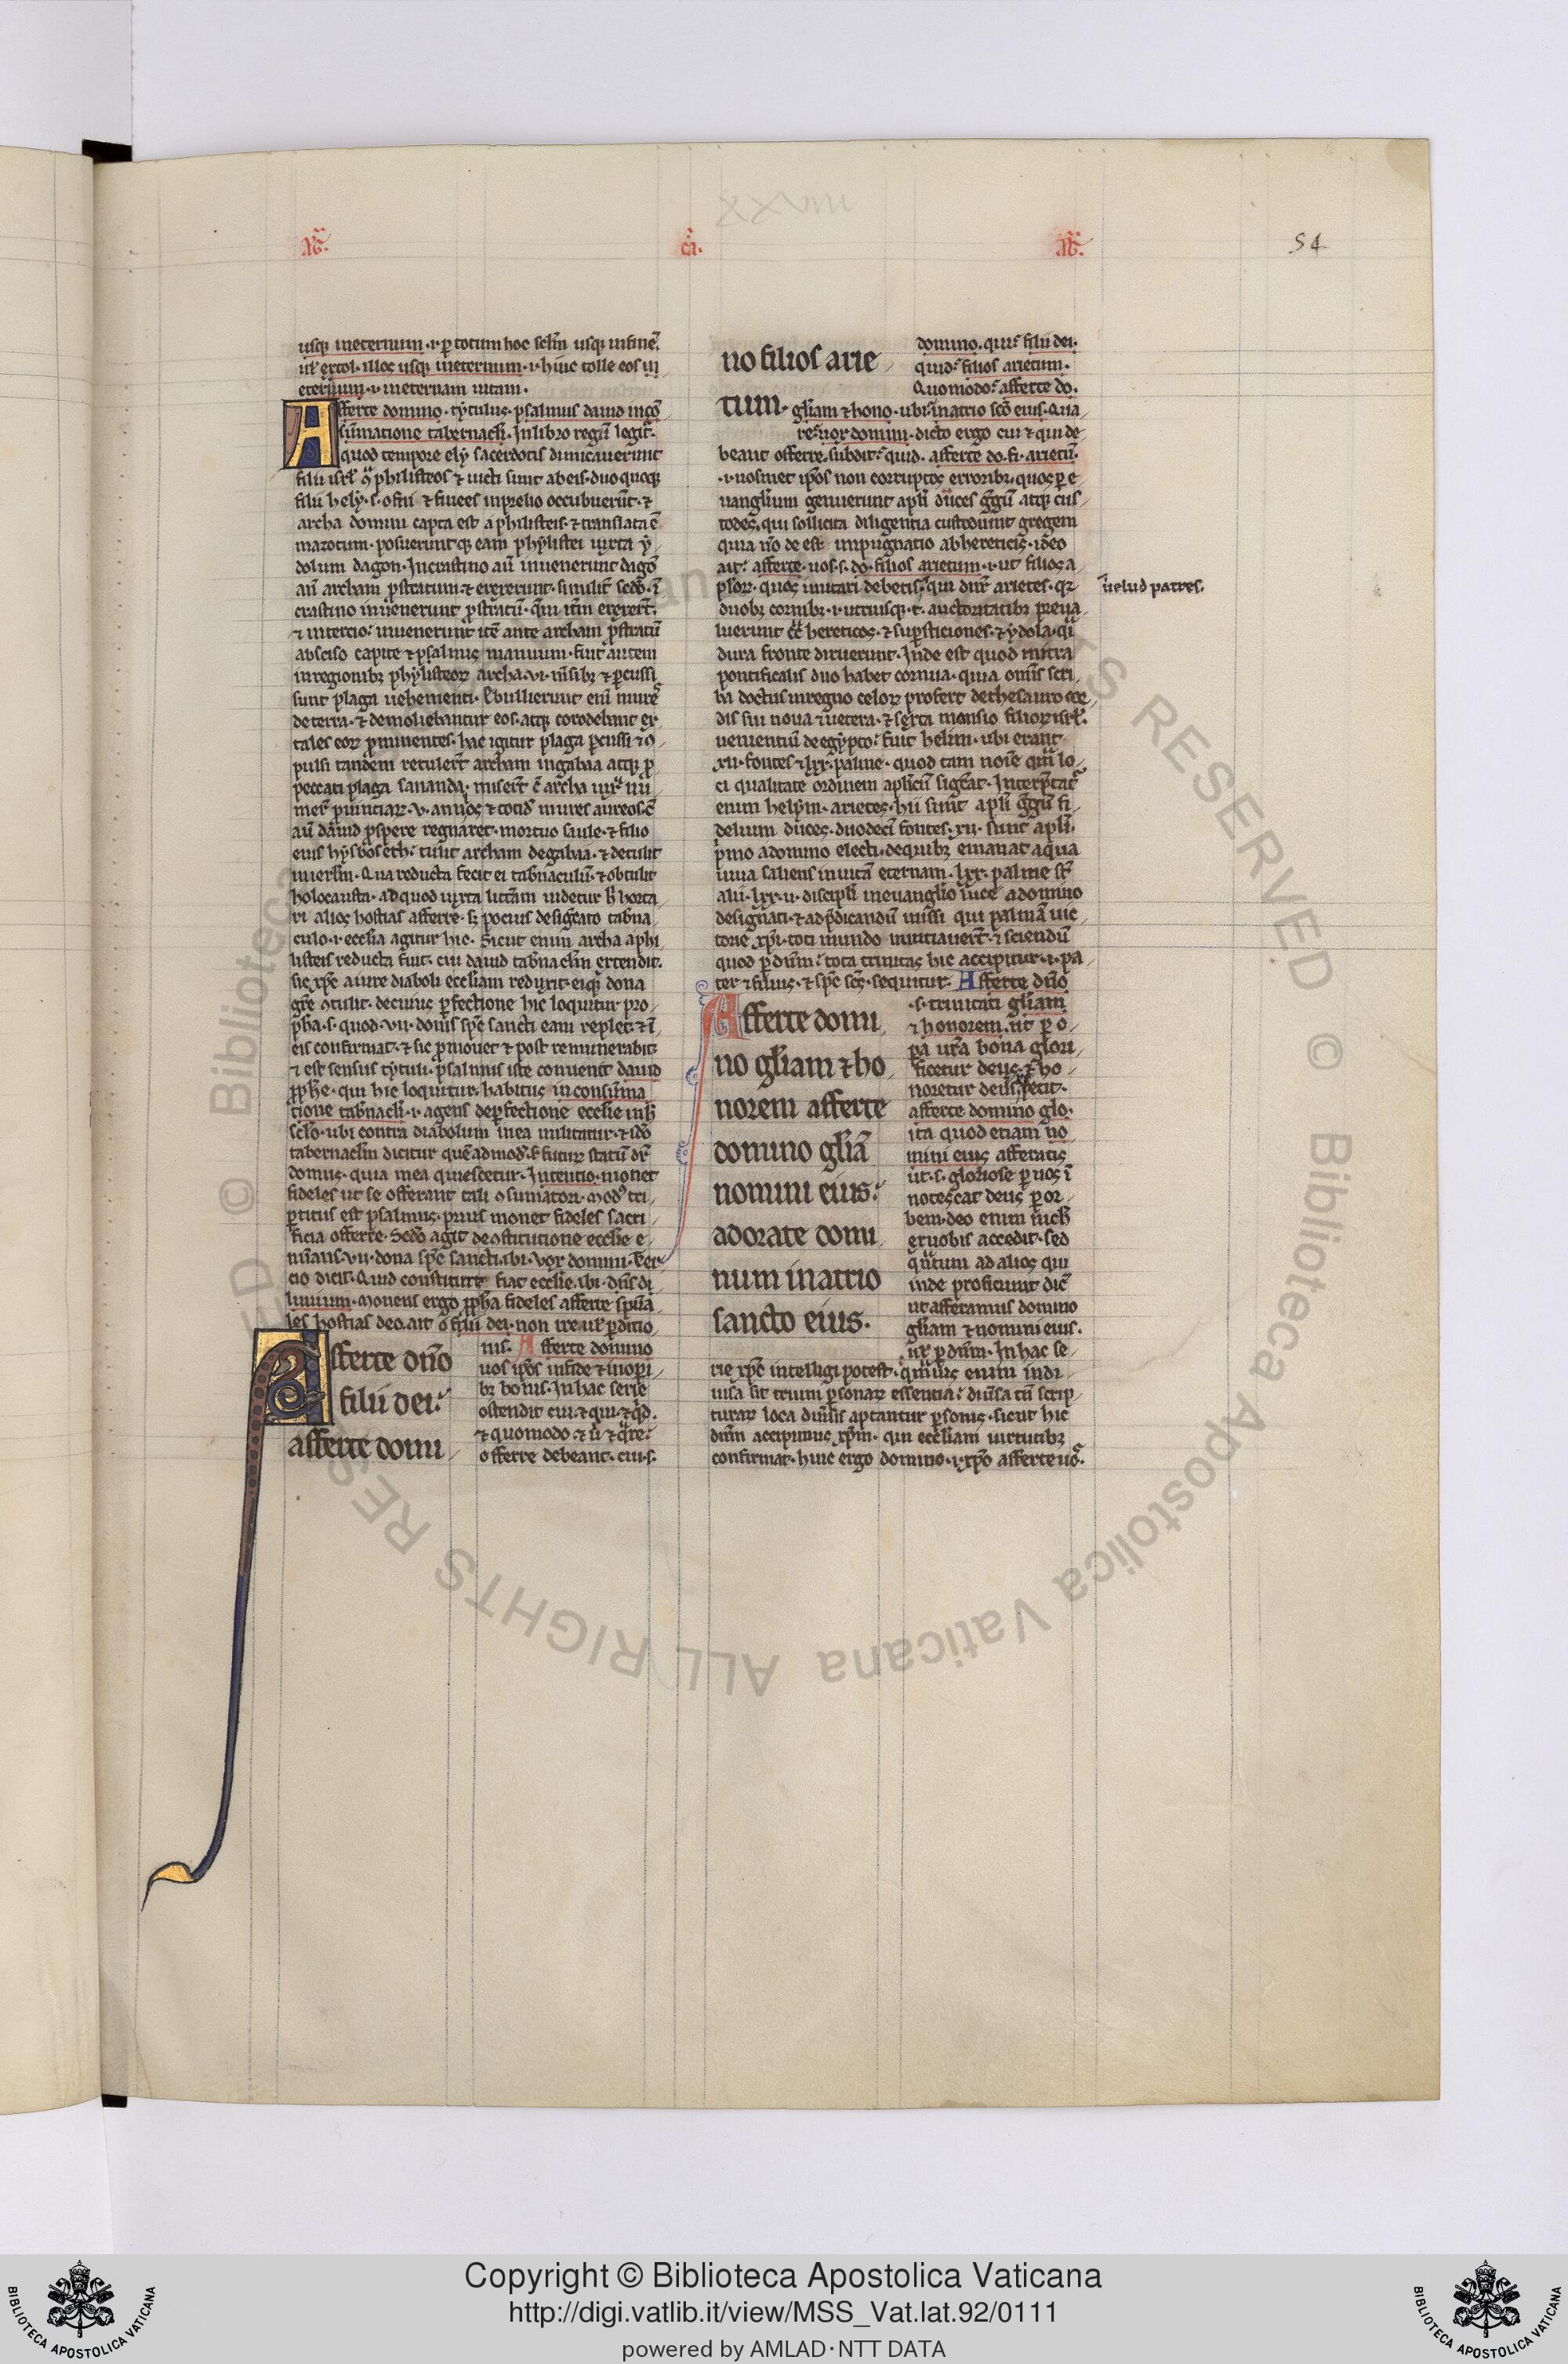 54
usq; ineternum .i. p totum hoc sclm usq; infine.
ul extol. illos usq; ineternum .i. hinc tolle eos in
eternum .i. ineternam uitam.
Afferte domino . tytulus . psalmus dauid incō
sūmatione tabernacli . Inlibro regū legit.
quod tempore ely sacerdotis dimicauerunt
filii isrl 9 philisteos & uicti sunt abeis . duo quoq;
filii hely . s. ofni & finees inprelio occubuerūt . &
archa domini capta est a philisteis . & translata ē
inazotum . posuerunt q; eam phylistei iuxta y
dolum dagon . Incrastino aū inuenerunt dagō
añ archam pstratum . & erexerunt . similit scdō . ī
crastino inuenerunt pstratū . qui itm erexert.
& intercio inuenerunt itē ante archam pstratū
absciso capite & psalmus manuum . fuit autem
inregionibz phylisteoꝝ archa . ui . msibz & pcussi
sunt plaga uehementi . Ebullierunt eni mures
deterra . & demoliebantur eos . atq; corodebant ex
tales eoꝝ prominentes . hac igitur plaga pcussi & 9
pulsi tandem retulert archam ingabaa atq; p
peccati plaga sananda . misert c archa iux nu
mer puinciaꝝ . v. annos & totid mures aureos . c
aū dauid pspere regnaret . mortuo saule . & filio
eius hysboseth . tulit archam degabaa . & detulit
inierlm . Qua reducta fecit ei tabnaculū . & obtulit
holocausta . ad quod iuxta litteam uidetur h horta
ri alios hostias afferre . s; pocius designato tabna
culo .i. ecclia agitur hic . Sicut enim archa aphi
listeis reducta fuit . cui dauid tabnaclm extendit.
sic xpc aiure diaboli eccliam reduxit . eiq; dona
gre 9tulit . decuius pfectione hic loquitur pro
pha . s. quod . vii . donis spc sancti eam replet . & ī
eis confirmat . & sic pmouet & post remunerabit
& est sensus tytuli . psalmus iste conuenit dauid
pphe . qui hic loquitur . habitus inconsūma
tione tabnacli .i. agens depfectione ecclie inh
sclo . ubi contra diabolum inea militatur . & ido
tabernaclm dicitur quēadmod . s futur statū dr
domus . quia inea quiescetur . Intentio . monet
fideles ut se offerant tali 9sumatori . Mod9 tri
ptitus est psalmus . prius monet fideles sacri
ficia offerre . Scdo agit de9stitutione ecclie e
nūans . v ii . dona spc sancti . ibi . Vox domini . Ter
cio dicit . Quid constitute fiat ecclie . ibi . dns di
luuium . Monens ergo ppha fideles afferre spūa
les hostias deo . ait o filii dei . non ire ul pditio
Afferte dño
filii dei
afferte domi
nis . Afferte domino
uos ipos infide & inopi
bz bonis . In hac serie
ostendit cui . & qui . & qd .
& quomodo . & u & qre
offerre debeant . cui . s.
no filios arie
tum .
domino . qui filii dei .
quid filios arietum .
Quomodo afferte do .
gliam & hono . ubi inatrio sco eius . Qua
re uox domini . dicto ergo cui & qui de
beant offerre . subdit quid . afferte do . fi . arietū .
.i. uosmet ipos non corruptos erroribz . quos p e
uanglium genuerunt apli duces ggū atq; cus
todes . qui sollicita diligentia custodiunt gregem
quia no de est impugnatio abhereticis . ideo
ait afferte . uos . s. do . filios arietum .i. ut filios a
ploꝝ . quos imitari debetis . qui dnr arietes . qz
duobz cornibz .i. utriusq; t. auctoritatibz preua
luerunt cc hereticos . & supsticiones . & ydola . qi
dura fronte diruerunt . Inde est quod mitra
pontificalis duo habet cornua . quia omis scri
ba doctus inregno celoꝝ profert dethesauro cor
dis sui noua & uetera . & sexta mansio filioꝝ isrl
uenientiū deegypto fuit helim . ubi erant
xii . fontes & lxx . palme . quod tam noie qm lo
ci qualitate ordinem aplicū signat . Interptat
enim helym . arietes . hii sunt apli ggū fi
delium duces . duodeci fontes . xii . sunt apli .
pmo adomino electi . dequibz emanat aqua
uiua saliens inuitā eternam . lxx . palme st
alii . lxx . ii . discipli ineuanglio luce adomino
designati . & adpdicandū missi qui palmā uic
torie xpi . toti mundo nuntiauert . & sciendū
quod p dnm tota trinitas hic accipitur .i. pa
ter & filius . & spc scs . sequitur . Afferte dño
Afferte domi
no gliam & ho
norem afferte
domino gliā
nomini eius
adorate domi
num inatrio
sancto eius .
.s. trinitati gliam
& honorem . ut p o
pa ura bona glori
ficetur deus . & ho
noretur deus petit .
afferte domino glo .
ita quod etiam no
mini eius afferatis
ut . s. gloriose p uos ī
notescat deus p or
bem . deo enim nich
exuobis accedit . sed
qntum ad alios qui
inde proficiunt dic
ut afferamus domino
gliam & nomini eius .
ux p dnm . In hac se
rie xpc intelligi potest . qmuis enim indi
uisa sit trium psonaꝝ essentia duisa tn scrip
turaꝝ loca diuisis aptantur psonis . sicut hic
dnm accipimus xpm . qui eccliam uirtutibz
confirmat . huic ergo domino .i. xpo afferte uos .
uelud patres .
Copyright © Biblioteca Apostolica Vaticana
http://digi.vatlib.it/view/MSS_Vat.lat.92/0111
powered by AMLAD·NTT DATA
BIBLIOTECA APOSTOLICA VATICANA
BIBLIOTECA APOSTOLICA VATICANA
© Biblioteca Apostolica Vaticana ALL RIGHTS RESERVED